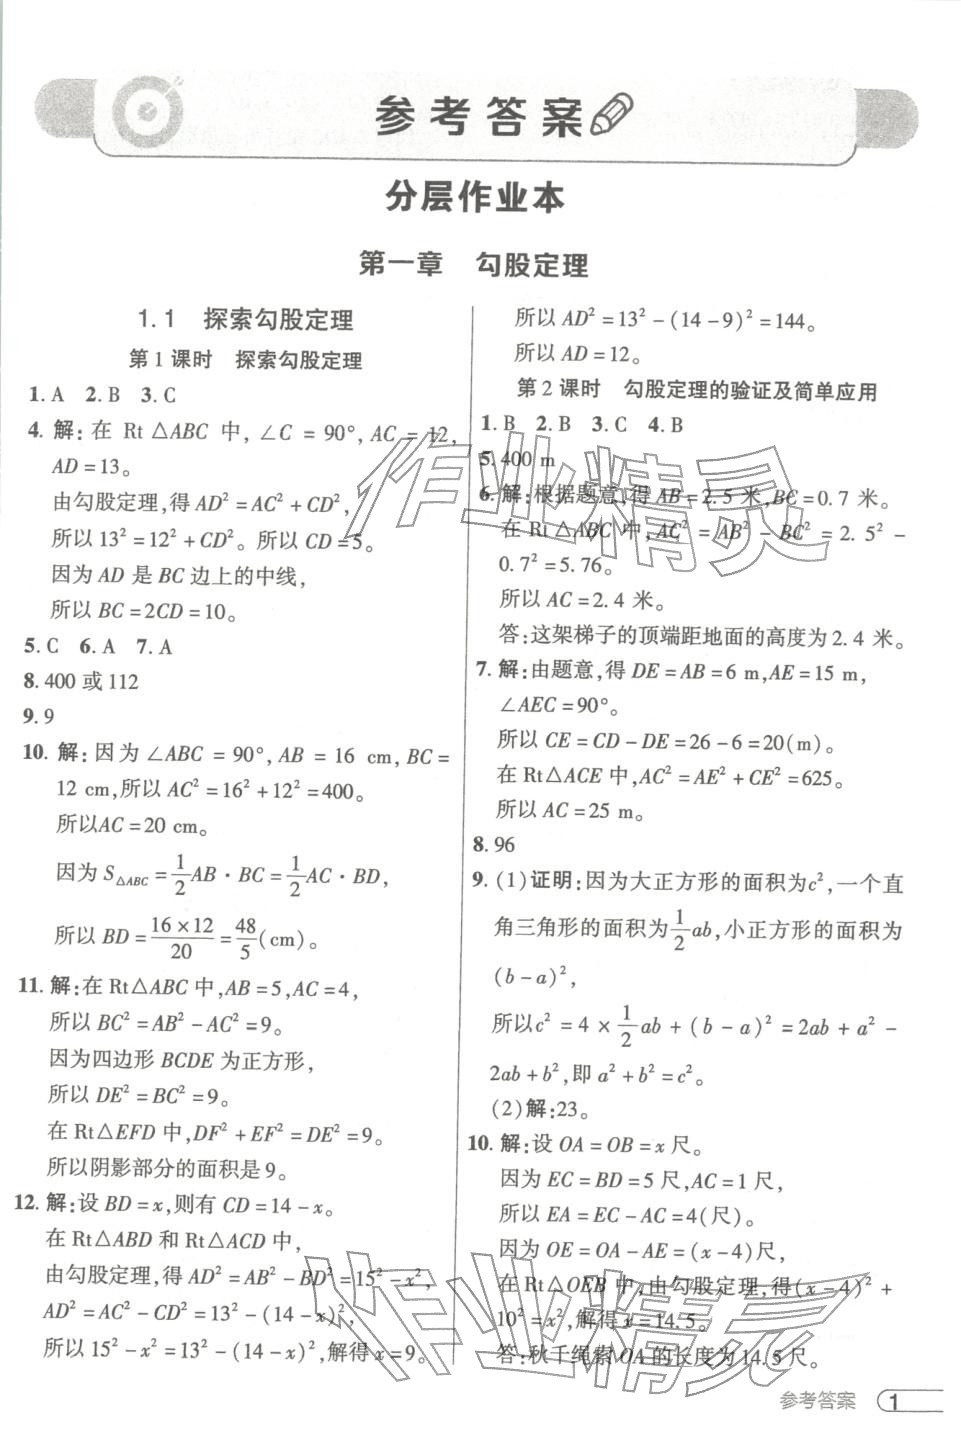 参考答案
分层作业本
第一章 勾股定理
1.1 探索勾股定理
第1课时 探索勾股定理
1. A 2. B 3. C
4. 解:在 Rt△ABC 中,∠C=90°,AC=12,
AD=13。
由勾股定理,得 AD²=AC²+CD²,
所以 13²=12²+CD²。所以 CD=5。
因为 AD 是 BC 边上的中线,
所以 BC=2CD=10。
5. C 6. A 7. A
8. 400 或 112
9. 9
10. 解:因为∠ABC=90°,AB=16 cm,BC=
12 cm,所以 AC²=16²+12²=400。
所以AC=20 cm。
因为 S△ABC=1/2 AB·BC=1/2 AC·BD,
所以 BD=16×12/20=48/5(cm)。
11. 解:在 Rt△ABC 中,AB=5,AC=4,
所以 BC²=AB²-AC²=9。
因为四边形 BCDE 为正方形,
所以 DE²=BC²=9。
在 Rt△EFD 中,DF²+EF²=DE²=9。
所以阴影部分的面积是 9。
12. 解:设 BD=x,则有 CD=14-x。
在 Rt△ABD 和 Rt△ACD 中,
由勾股定理,得 AD²=AB²-BD²=15²-x²,
AD²=AC²-CD²=13²-(14-x)²,
所以 15²-x²=13²-(14-x)²,解得 x=9。
所以 AD²=13²-(14-9)²=144。
所以 AD=12。
第2课时 勾股定理的验证及简单应用
1. B 2. B 3. C 4. B
5. 400 m
6. 解:根据题意,得 AB=2.5 米,BC=0.7 米。
在 Rt△ABC 中,AC²=AB²-BC²=2.5²-
0.7²=5.76。
所以 AC=2.4 米。
答:这架梯子的顶端距地面的高度为 2.4 米。
7. 解:由题意,得 DE=AB=6 m,AE=15 m,
∠AEC=90°。
所以 CE=CD-DE=26-6=20(m)。
在 Rt△ACE 中,AC²=AE²+CE²=625。
所以 AC=25 m。
8. 96
9. (1)证明:因为大正方形的面积为c²,一个直
角三角形的面积为1/2 ab,小正方形的面积为
(b-a)²,
所以c²=4×1/2 ab+(b-a)²=2ab+a²-
2ab+b²,即 a²+b²=c²。
(2)解:23。
10. 解:设 OA=OB=x 尺。
因为 EC=BD=5 尺,AC=1 尺,
所以 EA=EC-AC=4(尺)。
因为 OE=OA-AE=(x-4)尺,
在 Rt△OEB 中,由勾股定理,得(x-4)²+
10²=x²,解得 x=14.5。
答:秋千绳索 OA 的长度为 14.5 尺。
作业精灵
作业精灵
参考答案 1